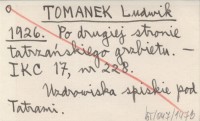 TOMANEK Ludwik
1926. Po drugiej stronie
tatrzańskiego grzbietu. —
IKC 17, nr 228.
Uzdrowiska spiskie pod
Tatrami.